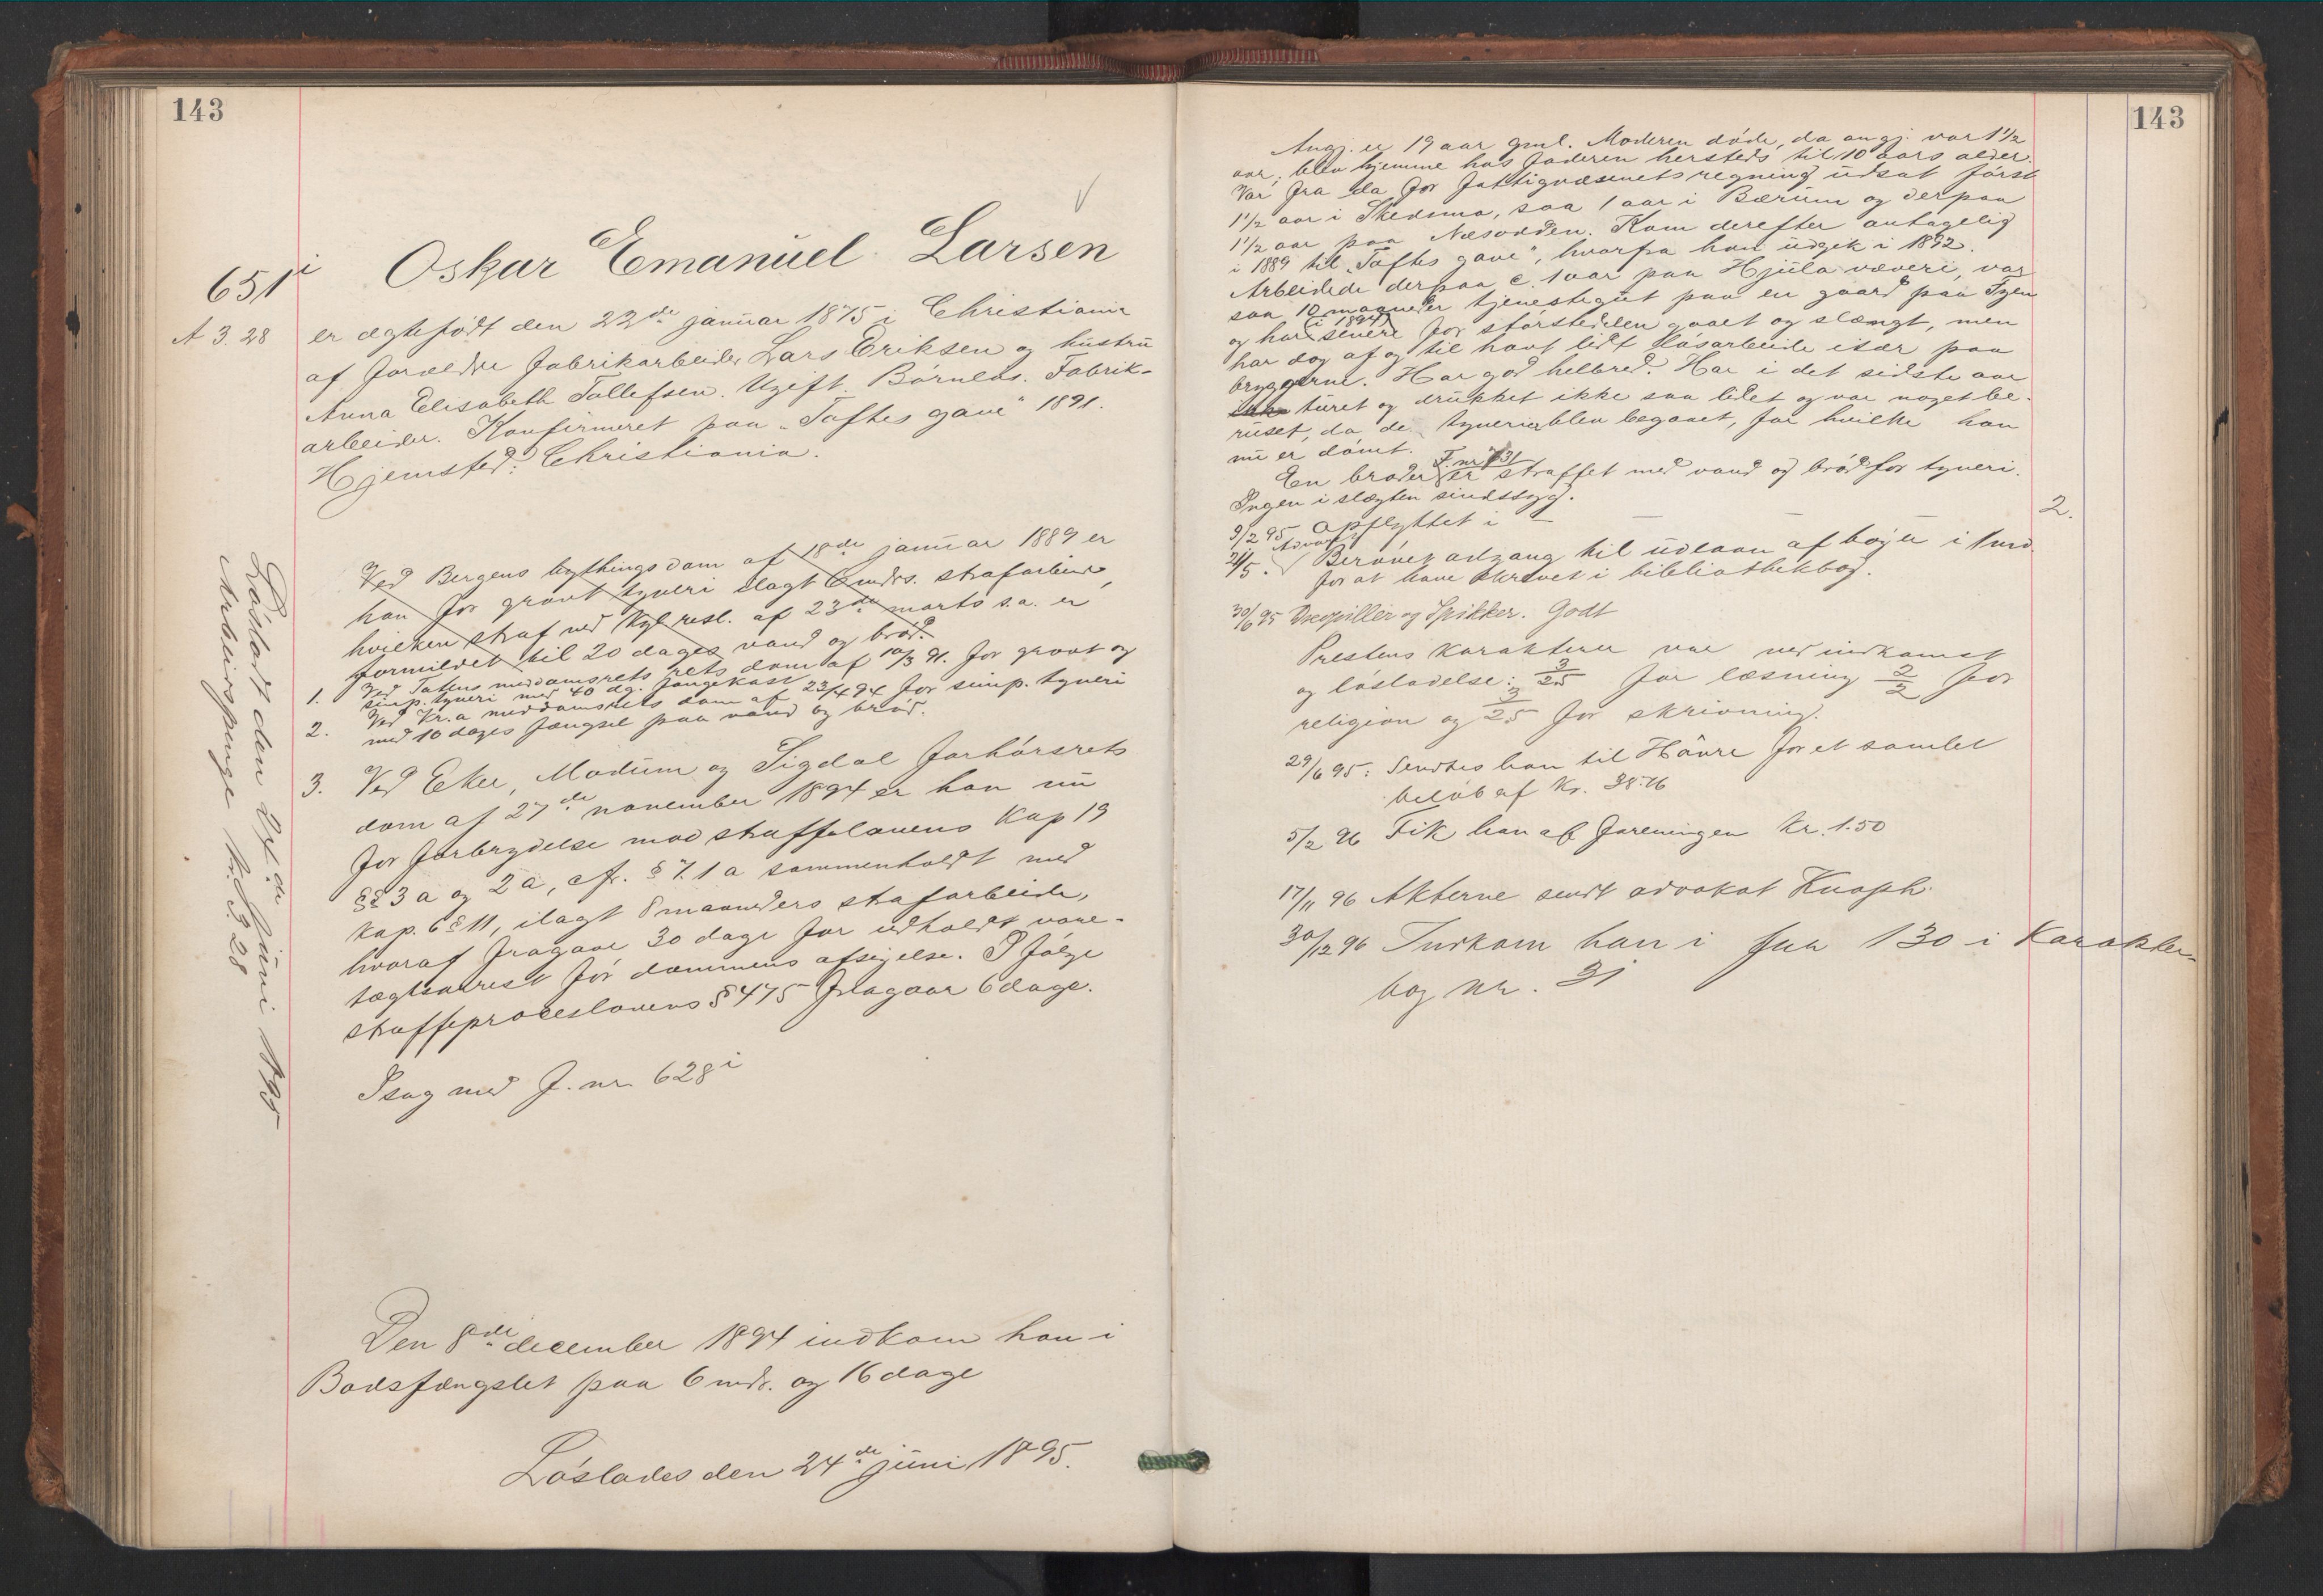 143
Oskar Emanuel Larsen
651 i
A 3. 28
er ægtefødt den 22de januar 1875 i Christiania
af forældre fabrikarbeider Lars Eriksen og hustru
Anna Elisabeth Tollefsen. Ugift. Børnløs. Fabrik-
arbeider. Konfirmeret paa "Toftes gave" 1891.
Hjemsted: Christiania.
Ved Bergens bythings dom af 18de januar 1889 er
han for grovt tyveri ilagt 6 mdrs. strafarbeide,
hvilken straf ved Kgl resl. af 23de marts s.a. er
formildet til 20 dages vand og brød.
1. Ved Totens meddomsrets rets dom af 10/3 91. for grovt og
simp. tyveri med 40 dg. fangekost
2. Ved Kr.a meddomsrets dom af 23/4 94 for simp. tyveri
med 10 dages fængsel paa vand og brød.
3. Ved Eker, Modum og Sigdal forhørsrets
dom af 27de november 1894 er han nu
for forbrydelse mod straffelovens Kap 19
§§ 3 a og 2 a, cfr. § 7. 1 a sammenholdt med
Kap. 6 § 11, ilagt 8 maaneders strafarbeide,
hvoraf fragaar 30 dage for udholdt vare-
tægtsarrest før dommens afsigelse. I følge
straffeproceslovens § 475 fragaar 6 dage.
I sag med f. nr. 628 i
Den 8de december 1894 indkom han i
Bodsfængslet paa 6 mdr. og 16 dage
Løslades den 24de juni 1895.
Løsladt den 24de juni 1895
Arbeidspenge kr. 3. 28
143
Angj. er 19 aar gml. Moderen døde, da angj. var 1 1/2
aar; blev hjemme hos faderen hersteds til 10 aars alder.
Var fra da for fattigvæsenets regning udsat først
1 1/2 aar i Skedsmo, saa 1 aar i Bærum og derpaa
1 1/2 aar paa Næsodden. Kom derefter antagelig
i 1889 til "Toftes gave", hvorfra han udgik i 1892.
Arbeidede derpaa c. 1 aar paa Hjula væveri, var
saa 10 maaneder tjenestegut paa en gaard paa
og har (i 1894) senere for størstedelen gaaet og slængt, men
har dog af og til havt lidt løsarbeide især paa
bryggerne. Har god helbred. Har i det sidste aar
turet og drukket ikke saa lidet og var noget be-
ruset, da de tyverier blev begaaet, for hvilke han
nu er dømt.
En broder F. nr 731 er straffet med vand og brød for tyveri.
Ingen i slægten sindssyg.
9/2 95 Opflyttet i — — — 2.
Advaret
21/5. Berøvet adgang til udlaan af bøger i 1 md.
for at have skrevet i bibliothekbog.
30/6 95 Drepiller og Spikker. Godt
Prestens karakterer var ved indkomst
og løsladelse: 3/2.5 for læsning 2/2 for
religion og 3/2.5 for skrivning.
29/6 95: Sendtes han til Havre for et samlet
beløb af Kr. 38.76
5/2 96 Fik han af foreningen Kr. 1.50
17/11 96 Akterne sendt advokat Knoph.
30/12 96 Indkom han i fnr 130 i Karakter-
bog nr. 31